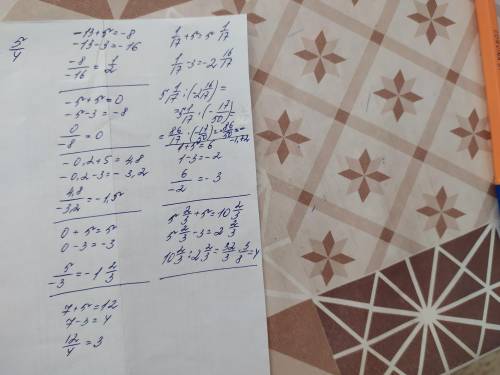 5/4
-13+5=-8
-13-3=-16
-8/-16 = 1/2
-5+5=0
-5-3=-8
0/-8 = 0
-0,2+5=4,8
-0,2-3=-3,2
4,8/-3,2 = -1,5
0+5=5
0-3=-3
5/-3 = -1 2/3
7+5=12
7-3=4
12/4 = 3
1/17 +5=5 1/17
1/17 -3=-2 16/17
5 1/17 : (-2 16/17)=
=5 1/17 · (-17/50)=
= 86/17 · (-17/50)=-86/50=-
-1,72
1+5=6
1-3=-2
6/-2 = -3
5 2/3 +5=10 2/3
5 2/3 -3=2 2/3
10 2/3 : 2 2/3 = 32/3 · 3/8 =4